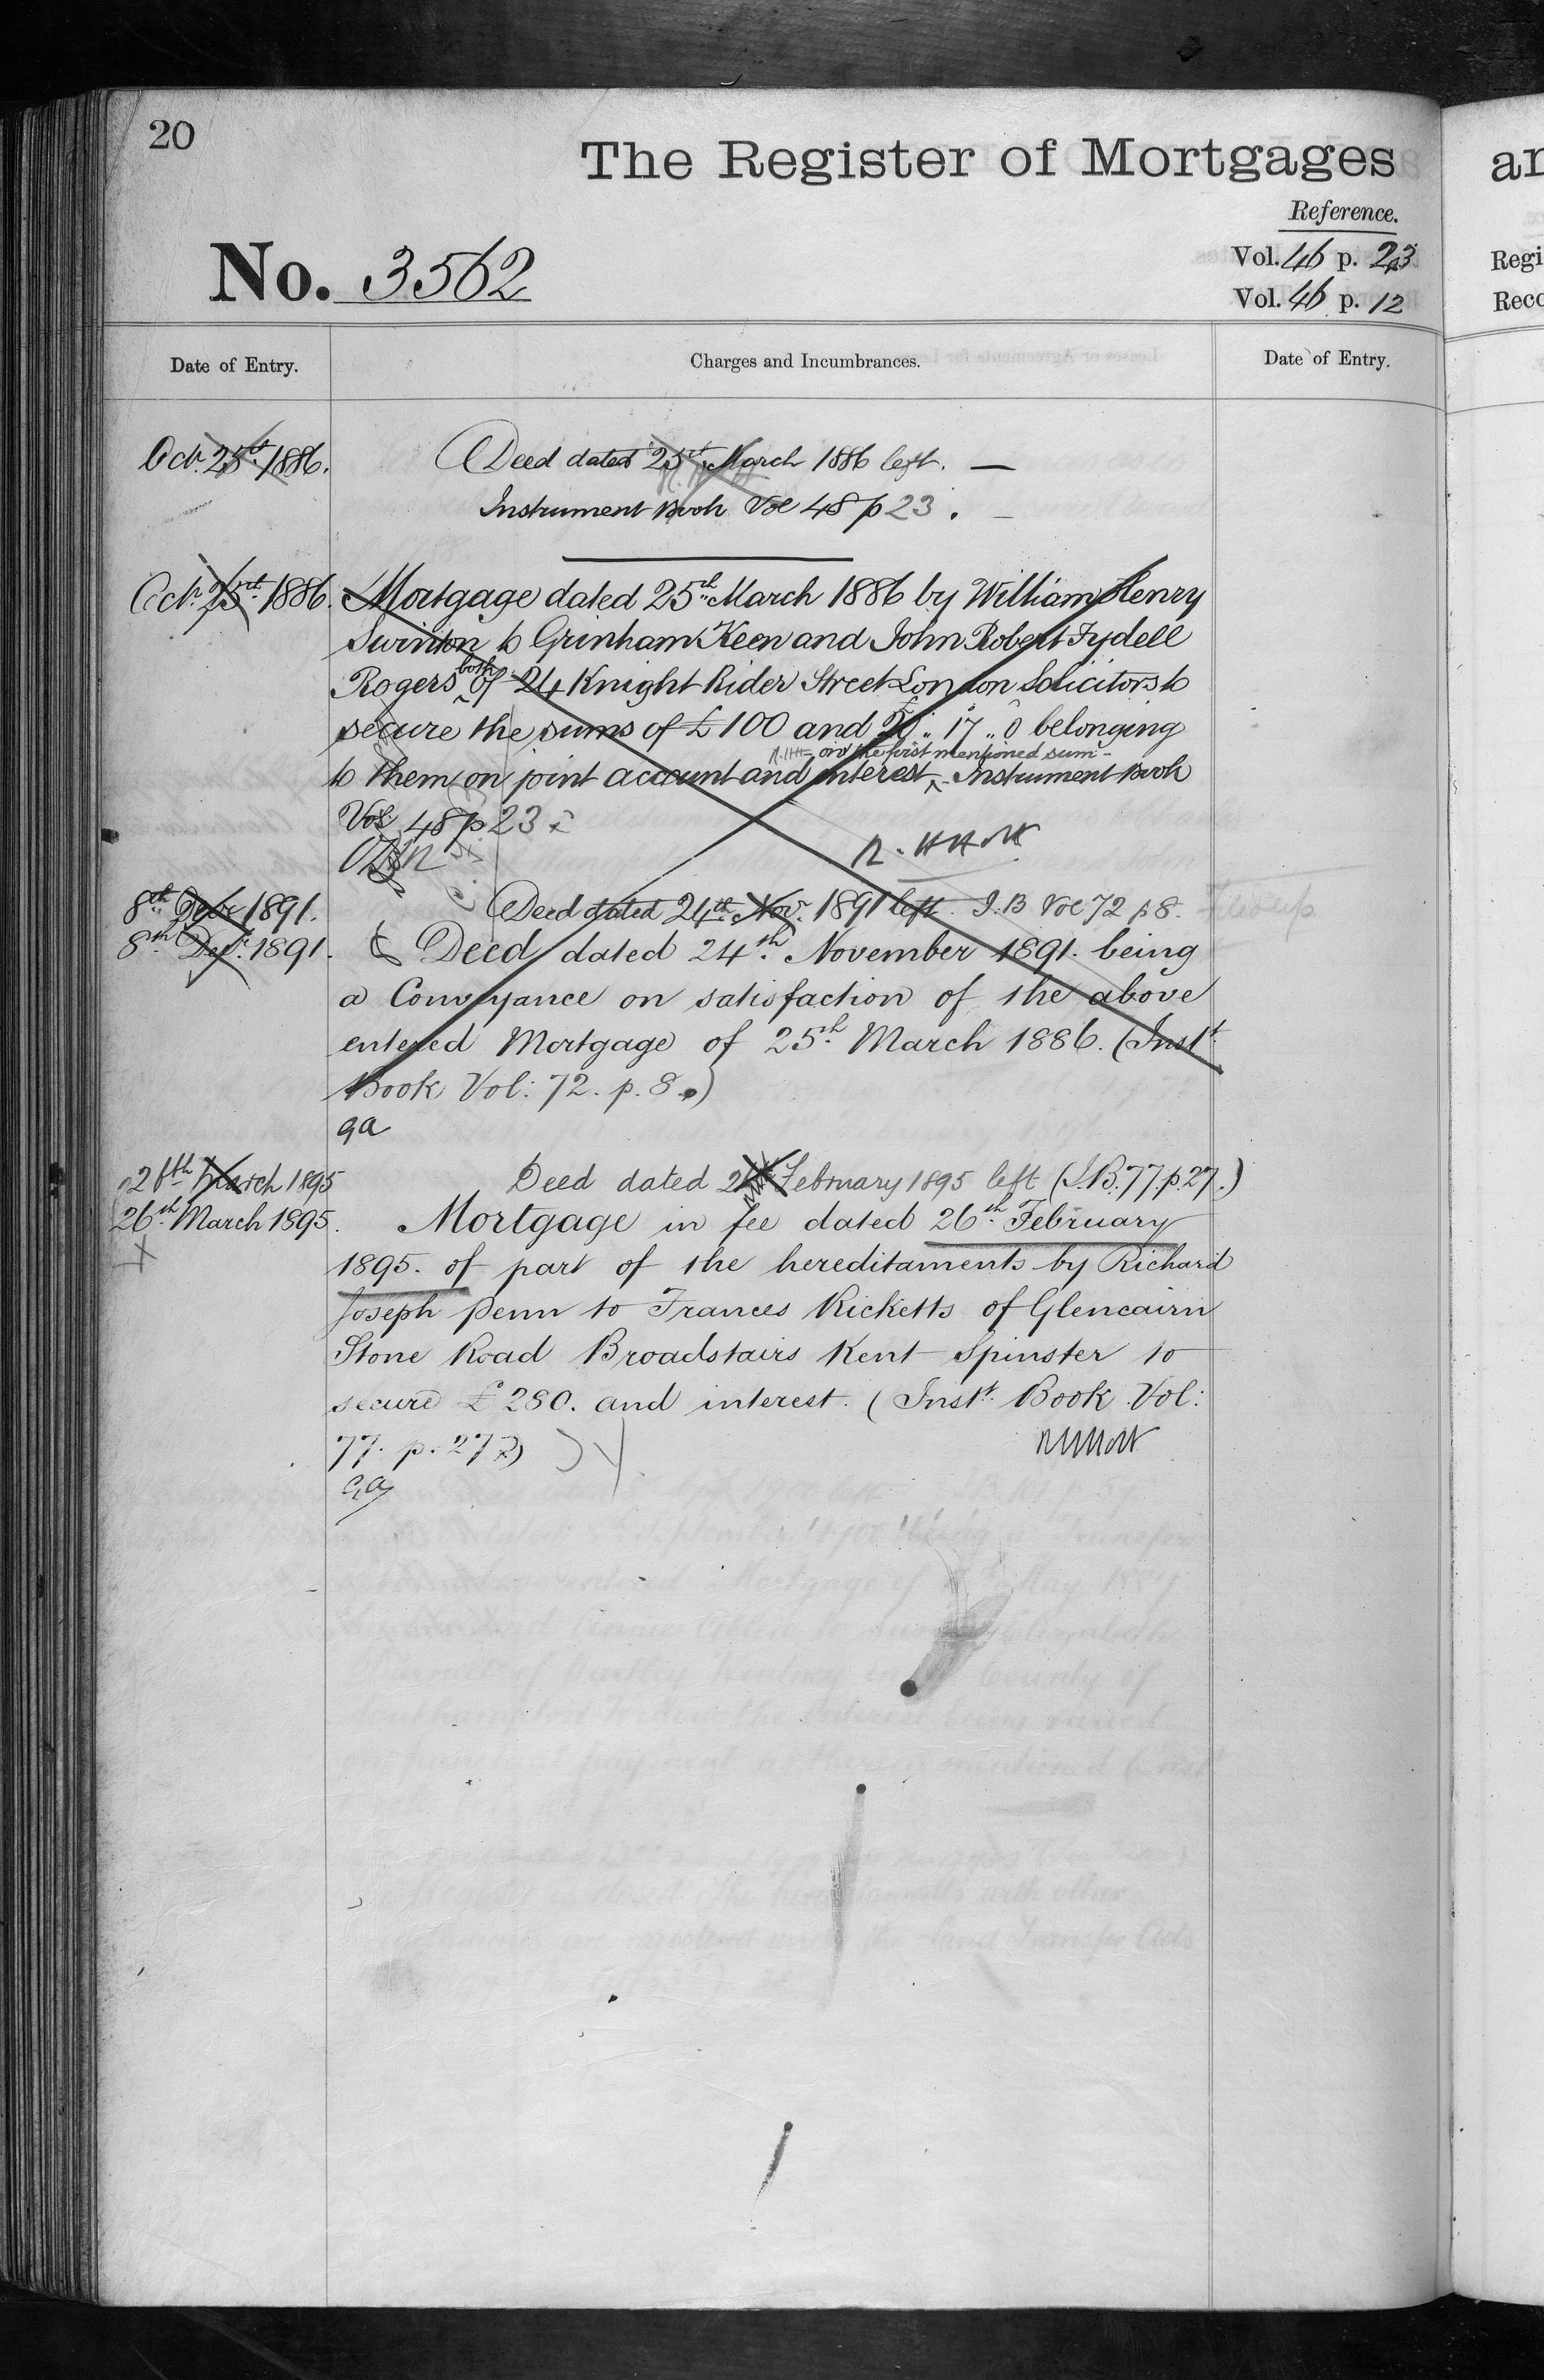 20
The Register of Mortgages
Reference.
No. 3562
Vol. 46 p. 23
Vol. 46 p. 12
Date of Entry.
Charges and Incumbrances.
Date of Entry.
Octr. 25th 1886.
Deed dated 25th March 1886 left.
Instrument Book Vol 48 p 23.
Octr. 25th 1886.
Mortgage dated 25th March 1886 by William Henry
Swinton to Grinham Keen and John Robert Fydell
Rogers both of 24 Knight Rider Street London Solicitors to
secure the sums of £100 and 17 .. 0 belonging
on the first mentioned sum
to them on joint account and interest Instrument Book
Vol: 48 p 23
8th Decr 1891.
Deed dated 24th Novr. 1891 left. I.B Vol 72 p 8.
8th Decr. 1891.
Deed dated 24th November 1891. being
a Conveyance on satisfaction of the above
entered Mortgage of 25th March 1886. (Instt.
Book Vol: 72. p. 8.)
ga
26th March 1895
Deed dated February 1895 left (I.B. 77. p. 27.)
26th March 1895.
Mortgage in fee dated 26th February
1895. of part of the hereditaments by Richard
Joseph Penn to Frances Ricketts of Glencairn
Stone Road Broadstairs Kent Spinster to
secure £280. and interest. (Instt. Book Vol:
77. p. 27)
ga
ar
Regi
Reco